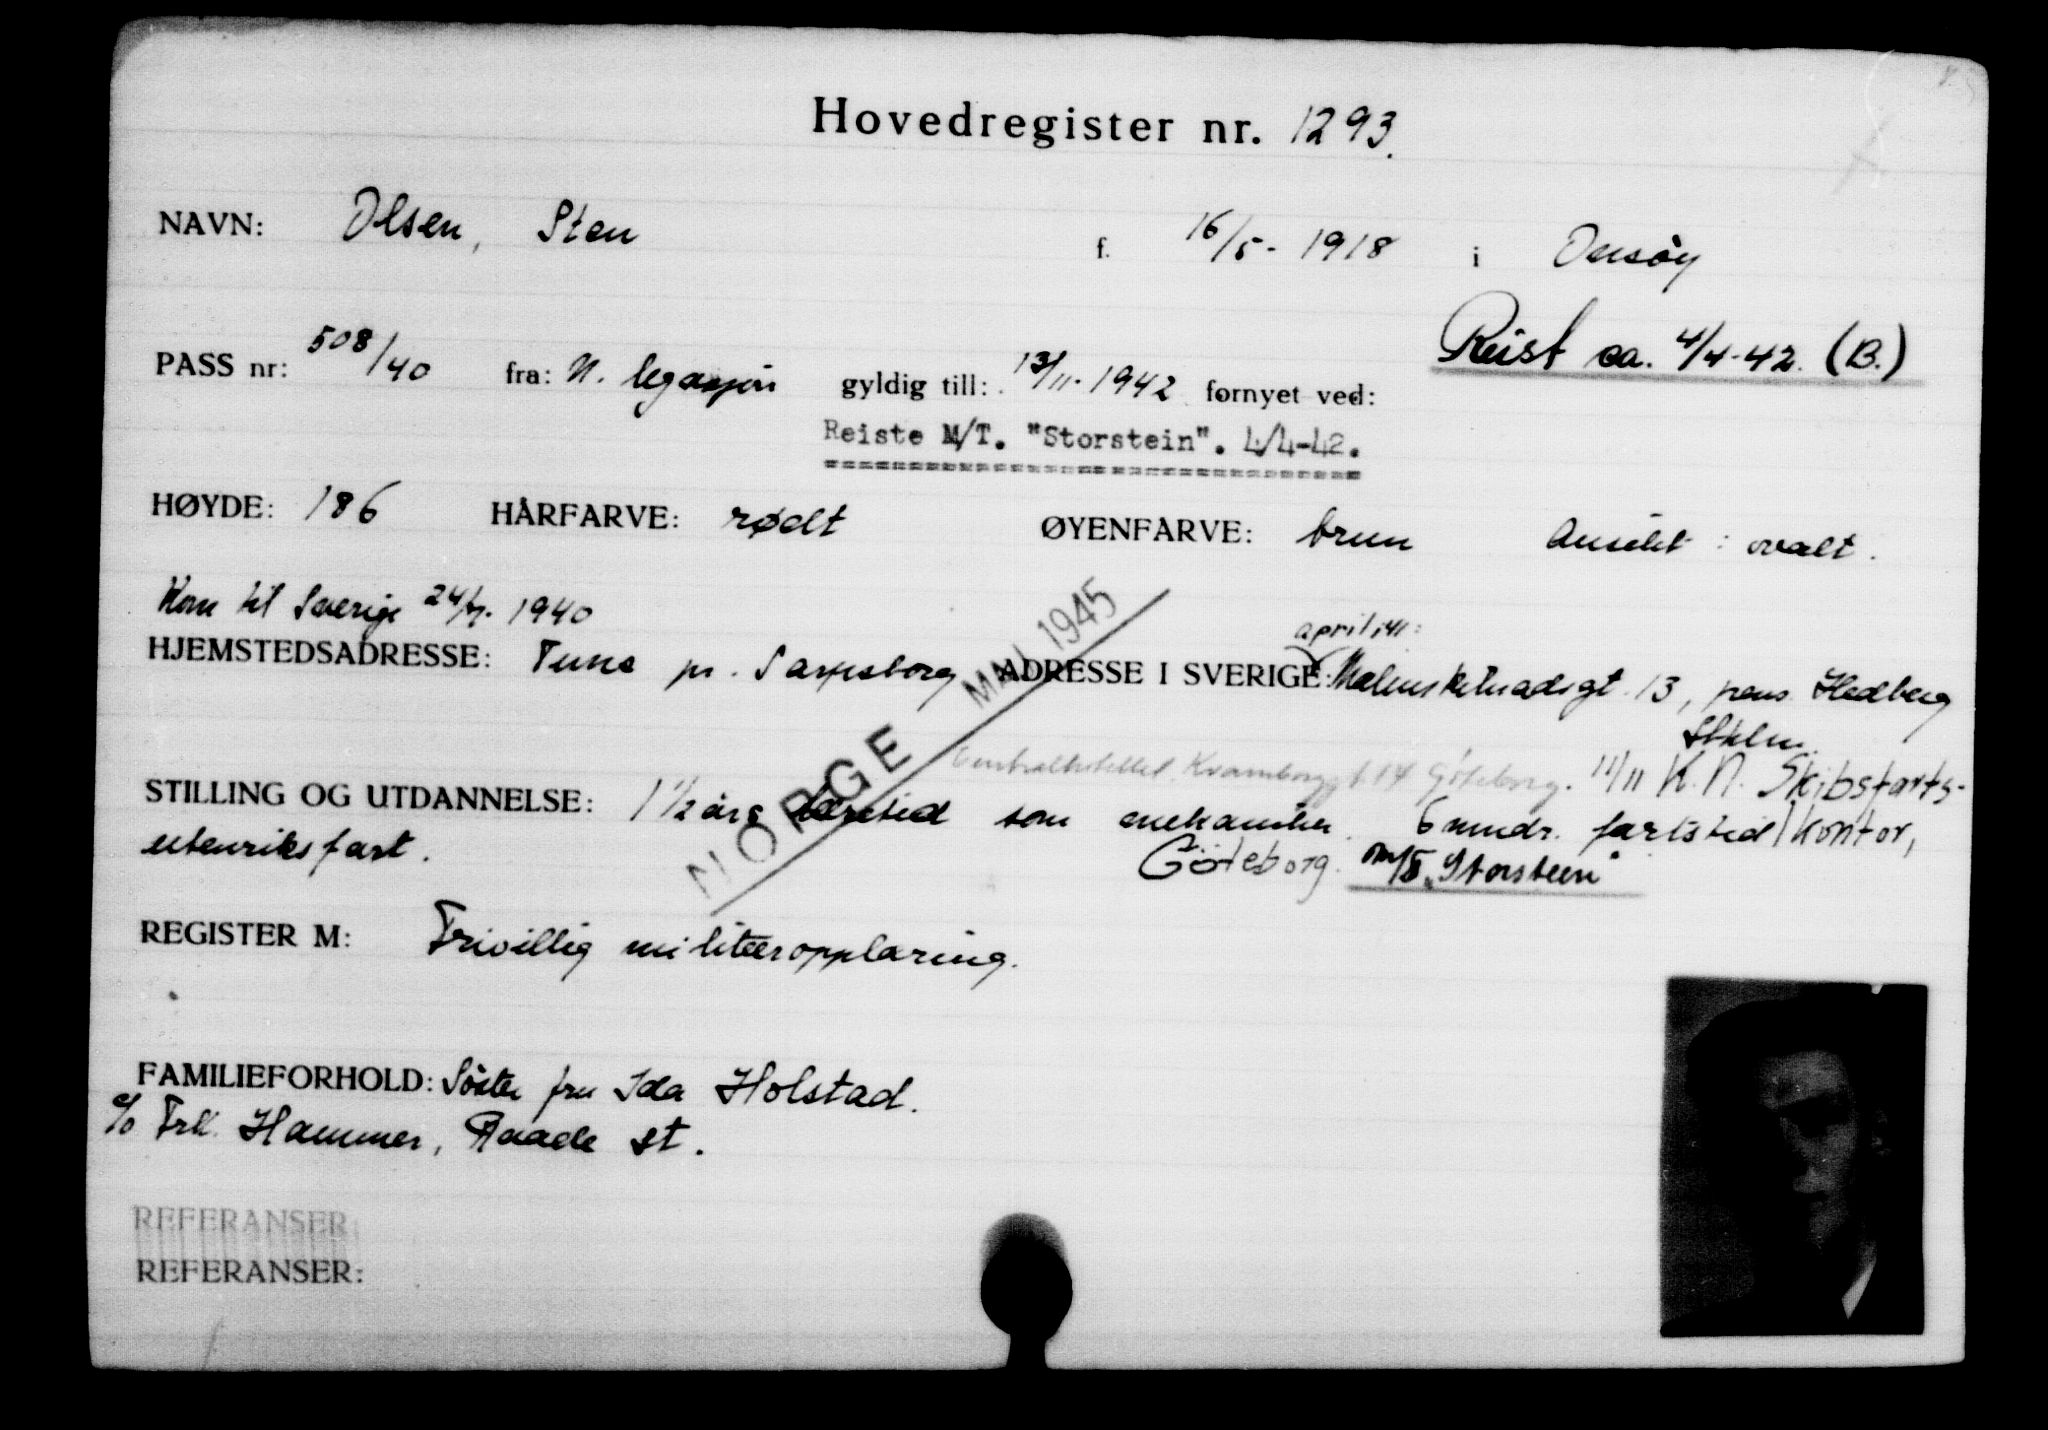 Hovedregister nr. 1293.
NAVN: Olsen, Sten f. 16/5- 1918 i Onsöy
Reist ca. 4/4-42. (B.)
PASS nr: 508/40 fra: N. legasjon gyldig till: 13/11-1942 fornyet ved:
Reiste M/T. "Storstein". 4/4-42.
HØYDE: 186 HÅRFARVE: rødt ØYENFARVE: brun Ansikt: ovalt.
Kom til Sverige 24/7- 1940
april 41:
HJEMSTEDSADRESSE: Tune pr. Sarpsborg ADRESSE I SVERIGE: Malmskilnadsgt. 13, pens. Hedberg
Sthlm.
NORGE MAI 1945
Göteborg. 11/11 K. N. Skibsfarts-
STILLING OG UTDANNELSE: 1 1/2 års læretid som mekaniker. 6 mndr. fartstid kontor,
utenriksfart. Göteborg. M/T "Storstein"
REGISTER M: Frivillig militæropplæring.
FAMILIEFORHOLD: Söster fru Ida Holstad.
c/o Frk. Hammer, Raade st.
REFERANSER:
REFERANSER: